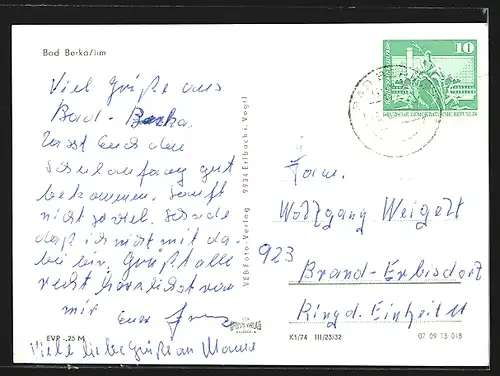 Bad Berka/Ilm
Viel Grüße aus
Bad-Berka.
Lasst Euch den
Schulanfang gut
bekommen. Sauft
nicht so viel. Schade
daß ich nicht mit da-
bei bin. Grüßt alle
recht herzlichst von
mir
Euer
Viele liebe Grüße an
EVP -,25 M
VEB Foto-Verlag 9934 Erlbach i. Vogtl
10
DEUTSCHE DEMOKRATISCHE REPUBLIK
Fam.
Wolfgang Weigelt
923
Brand-Erbisdorf
Ring d. Einheit 11
K1/74 III/23/32
07 09 13 018